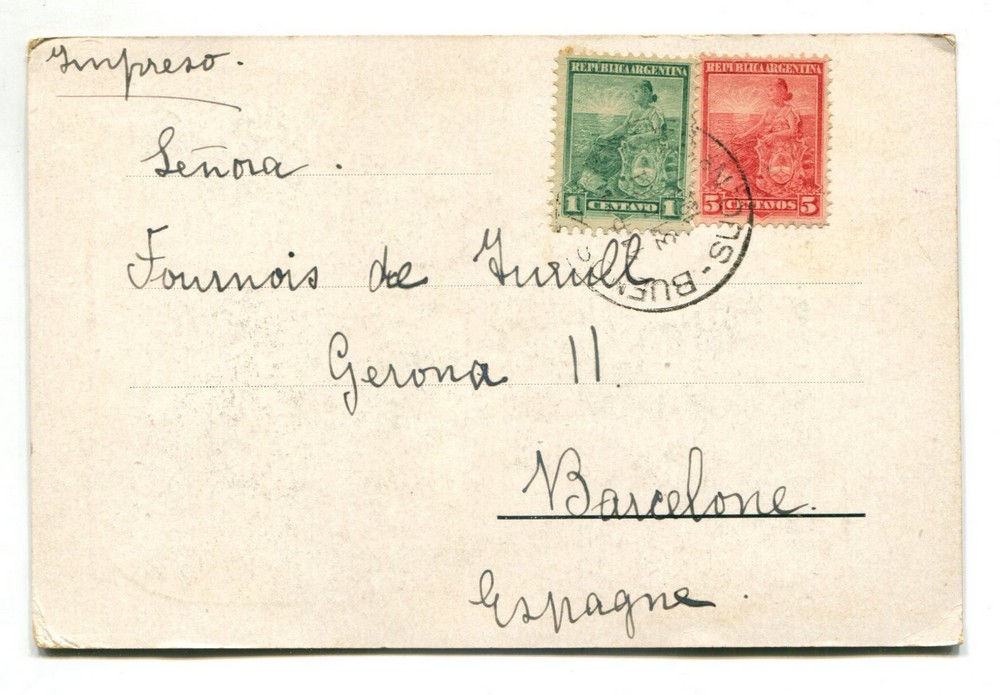 Impreso.
REPUBLICA ARGENTINA
1 CENTAVO 1
REPUBLICA ARGENTINA
5 CENTAVOS 5
Señora.
Fournois de Turull
Gerona 11.
Barcelone.
Espagne.